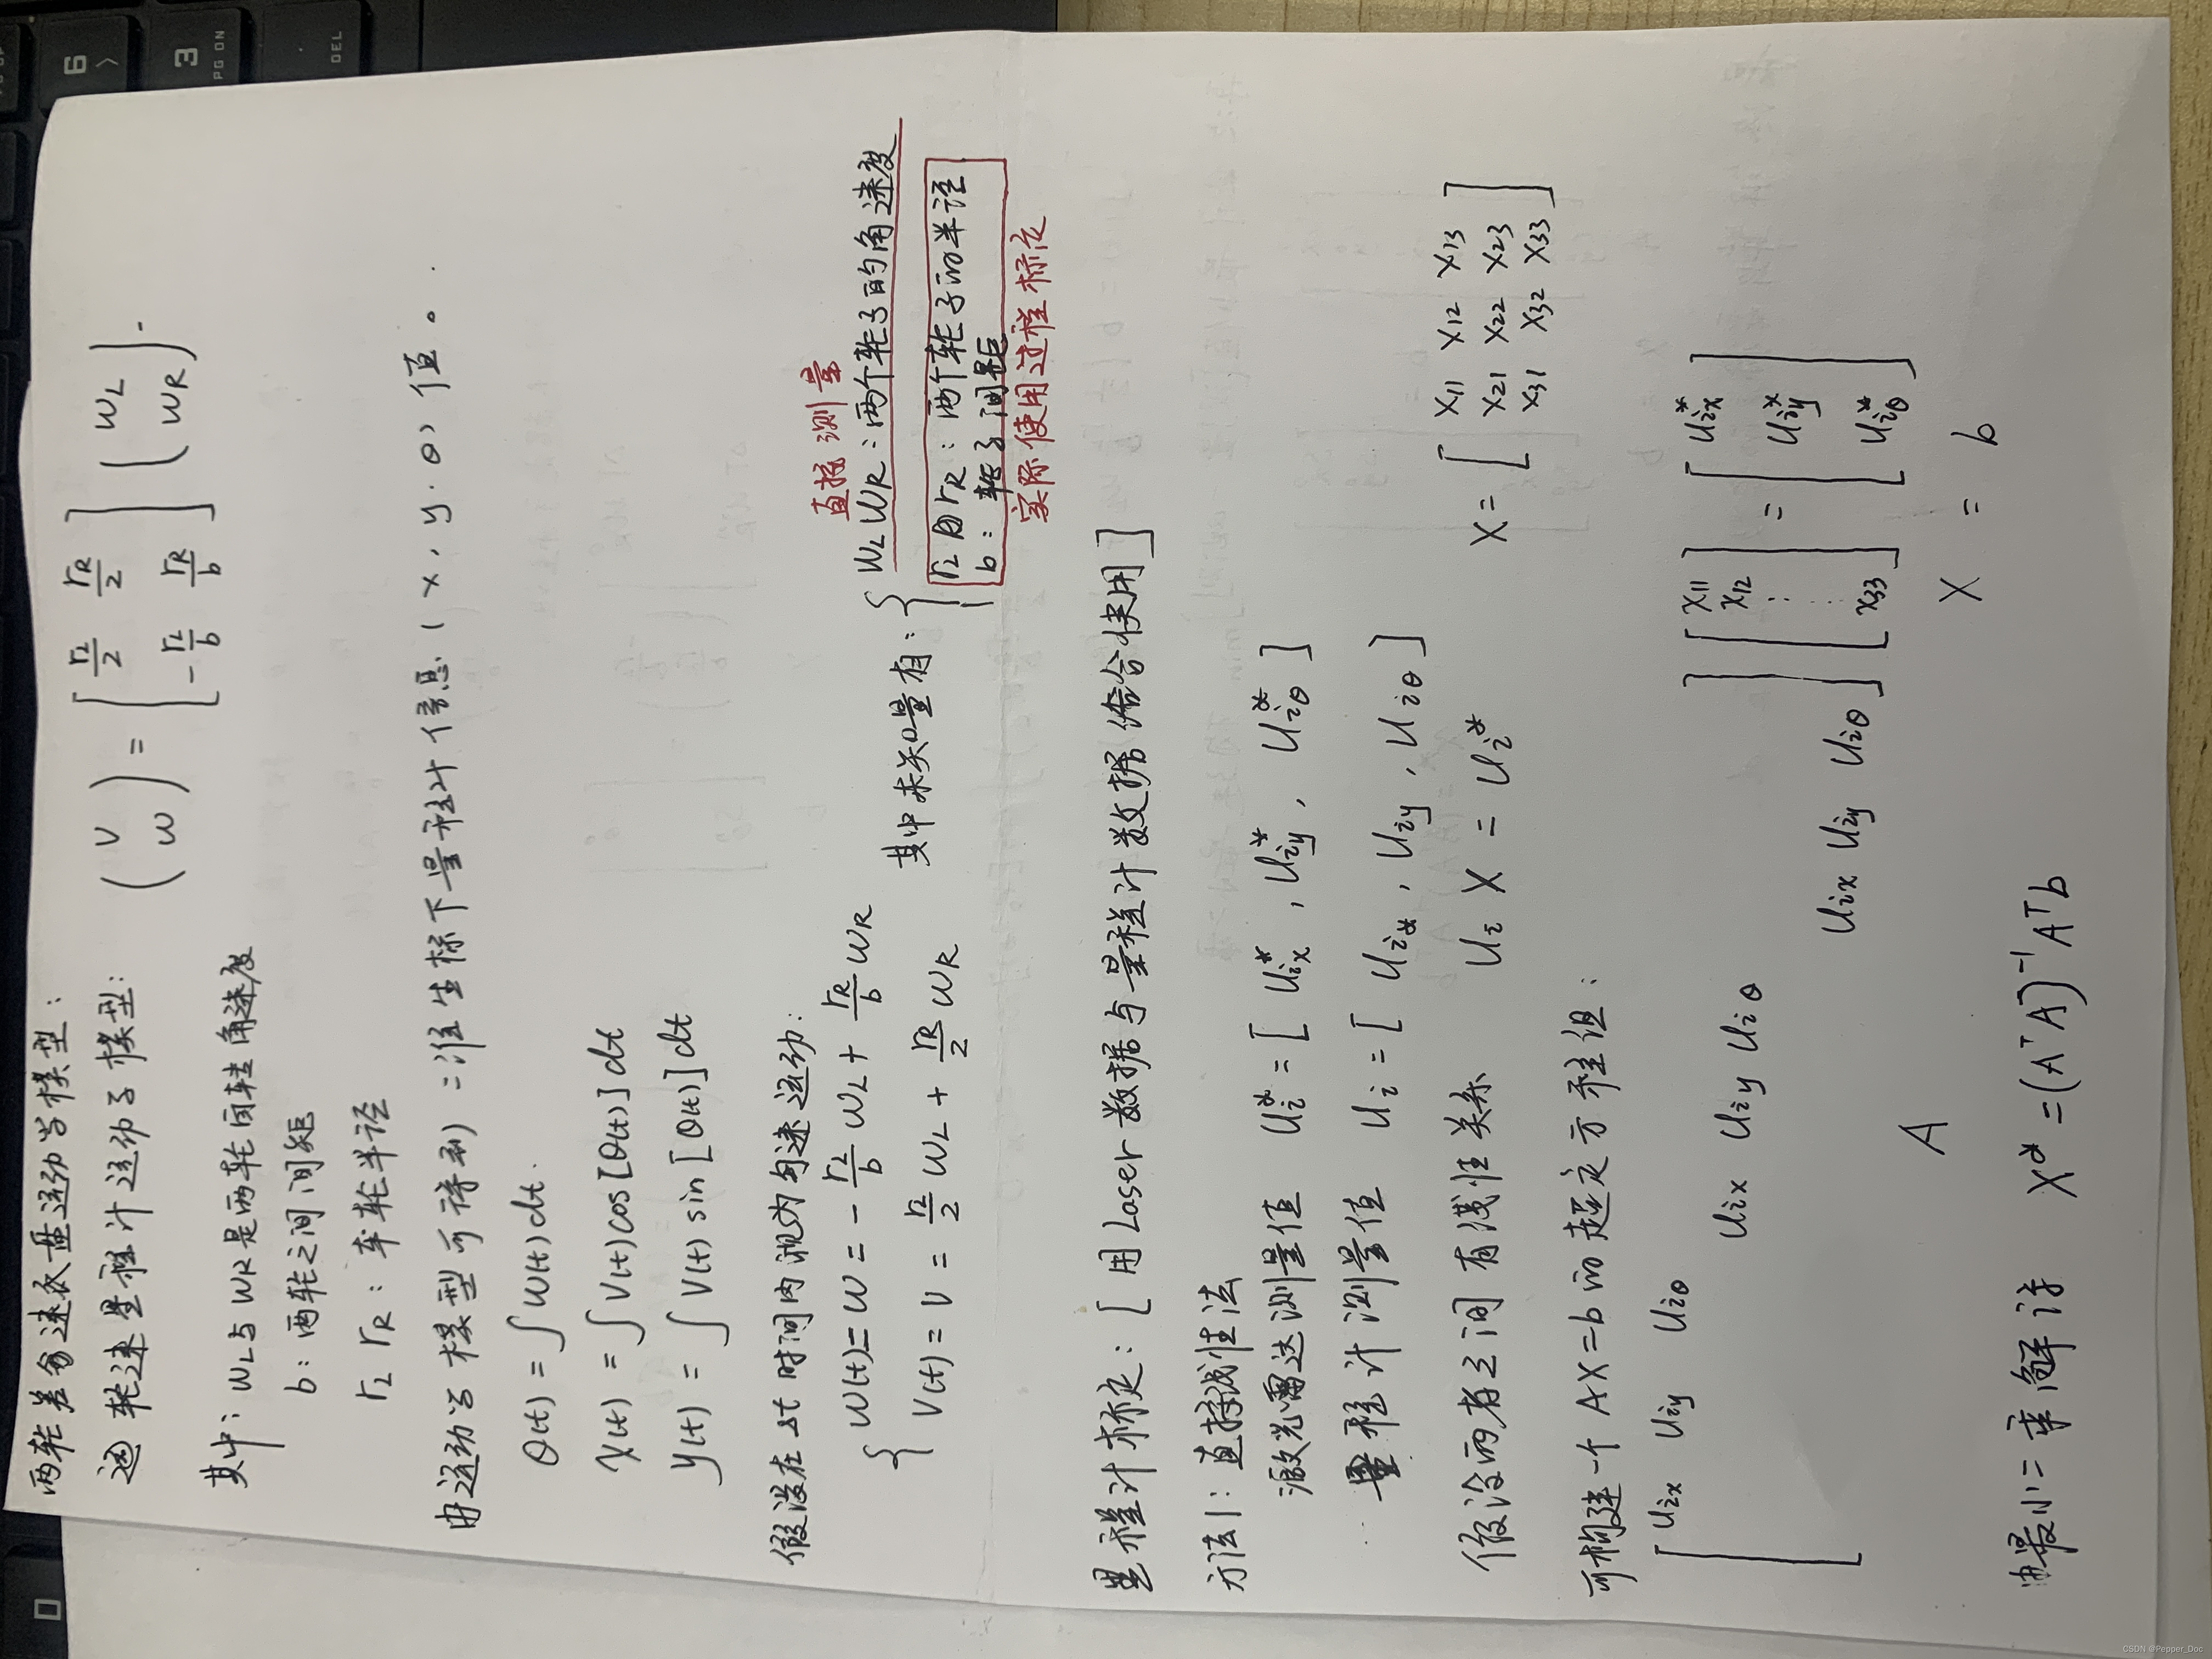 两轮差分速底盘运动学模型:
轮速里程计运动学模型: (V W) = [r_L/2 r_R/2; -r_L/b r_R/b] (W_L W_R).
其中: W_L与W_R是两轮自转角速度
b: 两轮之间间距
r_L r_R: 车轮半径
由运动学模型可得到: 准坐标下里程计信息 (x, y. θ) 值。
θ(t) = ∫W(t)dt.
x(t) = ∫V(t)cos[θ(t)]dt
y(t) = ∫V(t)sin[θ(t)]dt
假设在Δt时间内视为匀速运动:
{ W(t) = W = -r_L/b W_L + r_R/b W_R
V(t) = V = r_L/2 W_L + r_R/2 W_R
其中未知量有: {
直接测量
W_L W_R: 两个轮子的角速度
r_L r_R: 两个轮子的半径
b: 轮子间距
实际使用过程标定
里程计标定: [用Laser数据与里程计数据结合使用]
方法1: 直接线性法
激光雷达测量值 U_i^* = [U_ix^*, U_iy^*, U_iθ^*]
里程计测量值 U_i = [U_ix, U_iy, U_iθ]
假设两者之间有线性关系 U_i X = U_i^* X = [X11 X12 X13; X21 X22 X23; X31 X32 X33]
可构建一个AX=b的超定方程组:
[U_ix U_iy U_iθ; U_ix U_iy U_iθ; U_ix U_iy U_iθ] [X11 X12 ⋮ X33] = [U_ix^* U_iy^* U_iθ^*]
A X = b
最小二乘解法 X^* = (A^T A)^-1 A^T b
6 3 PG DN . DEL 0
CSDN @Pepper_Doc